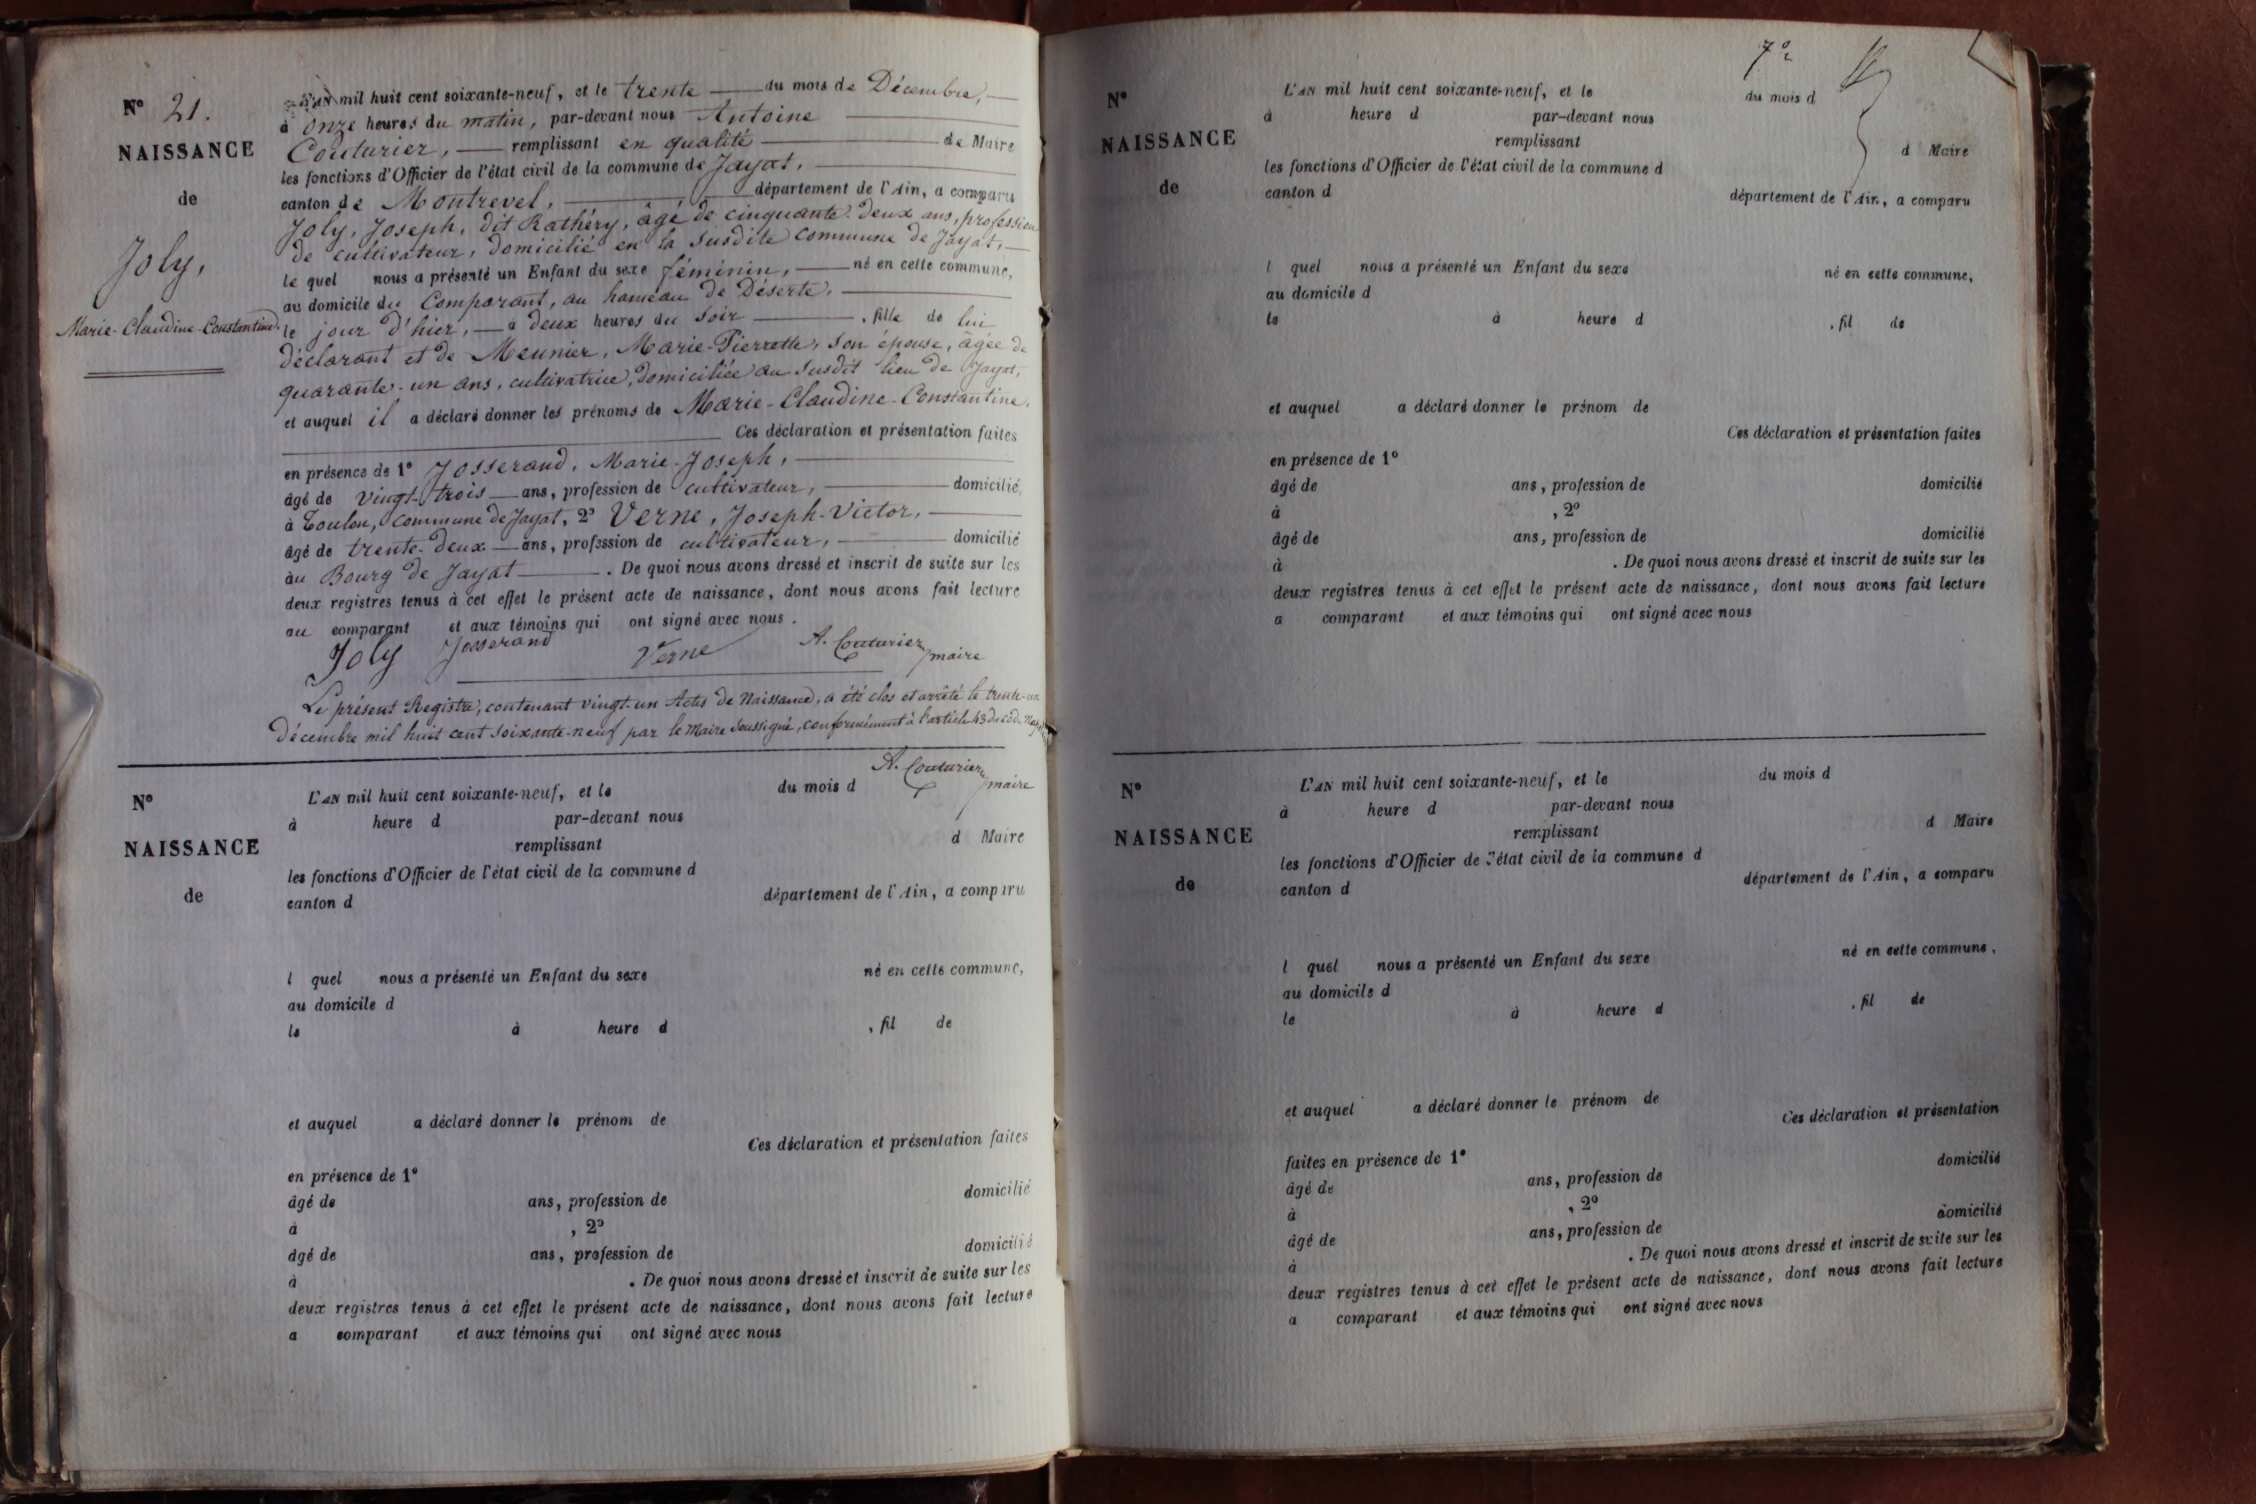 N° 21.
NAISSANCE
de
Joly,
Marie-Claudine-Constantine.
L'AN mil huit cent soixante-neuf, et le trente du mois de Décembre,
à onze heures du matin, par-devant nous Antoine
Couturier, remplissant en qualité de Maire
les fonctions d'Officier de l'état civil de la commune de Jayat,
canton de Montrevel, département de l'Ain, a comparu
Joly, Joseph, dit Rathéry, âgé de cinquante-deux ans, profession
de cultivateur, domicilié en la susdite commune de Jayat,
le quel nous a présenté un Enfant du sexe féminin, né en cette commune,
au domicile du Comparant, au hameau de Déserte,
le jour d'hier, à deux heures du soir, fille de lui
déclarant et de Meunier, Marie-Pierrette, son épouse, âgée de
quarante-un ans, cultivatrice, domiciliée au susdit lieu de Jayat,
et auquel il a déclaré donner les prénoms de Marie-Claudine-Constantine.
Ces déclaration et présentation faites
en présence de 1° Josserand, Marie-Joseph,
âgé de vingt-trois ans, profession de cultivateur, domicilié
à Toulon, commune de Jayat, 2° Verne, Joseph-Victor,
âgé de trente-deux ans, profession de cultivateur, domicilié
au Bourg de Jayat. De quoi nous avons dressé et inscrit de suite sur les
deux registres tenus à cet effet le présent acte de naissance, dont nous avons fait lecture
au comparant et aux témoins qui ont signé avec nous.
Joly Josserand Verne A. Couturier maire
Le présent Registre, contenant vingt-un Actes de Naissance, a été clos et arrêté le trente-un
Décembre mil huit cent soixante-neuf par le Maire soussigné, conformément à l'article 43 du code
A. Couturier maire
N°
NAISSANCE
de
L'AN mil huit cent soixante-neuf, et le du mois d
à heure d par-devant nous
remplissant d Maire
les fonctions d'Officier de l'état civil de la commune d
canton d département de l'Ain, a comparu
l quel nous a présenté un Enfant du sexe né en cette commune,
au domicile d
le à heure d , fil de
et auquel a déclaré donner le prénom de
Ces déclaration et présentation faites
en présence de 1°
âgé de ans, profession de domicilié
à , 2°
âgé de ans, profession de domicilié
à . De quoi nous avons dressé et inscrit de suite sur les
deux registres tenus à cet effet le présent acte de naissance, dont nous avons fait lecture
a comparant et aux témoins qui ont signé avec nous
N°
NAISSANCE
de
L'AN mil huit cent soixante-neuf, et le du mois d
à heure d par-devant nous
remplissant d Maire
les fonctions d'Officier de l'état civil de la commune d
canton d département de l'Ain, a comparu
l quel nous a présenté un Enfant du sexe né en cette commune,
au domicile d
le à heure d , fil de
et auquel a déclaré donner le prénom de
Ces déclaration et présentation faites
en présence de 1°
âgé de ans, profession de domicilié
à , 2°
âgé de ans, profession de domicilié
à . De quoi nous avons dressé et inscrit de suite sur les
deux registres tenus à cet effet le présent acte de naissance, dont nous avons fait lecture
a comparant et aux témoins qui ont signé avec nous
N°
NAISSANCE
de
L'AN mil huit cent soixante-neuf, et le du mois d
à heure d par-devant nous
remplissant d Maire
les fonctions d'Officier de l'état civil de la commune d
canton d département de l'Ain, a comparu
l quel nous a présenté un Enfant du sexe né en cette commune,
au domicile d
le à heure d , fil de
et auquel a déclaré donner le prénom de
Ces déclaration et présentation
faites en présence de 1°
âgé de ans, profession de domicilié
à , 2°
âgé de ans, profession de domicilié
à . De quoi nous avons dressé et inscrit de suite sur les
deux registres tenus à cet effet le présent acte de naissance, dont nous avons fait lecture
a comparant et aux témoins qui ont signé avec nous